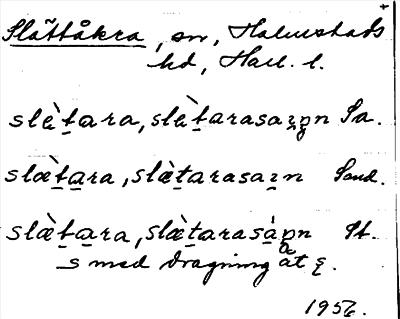 Slättåkra, sn, Halmstads
hd, Hall. l.
slètara, slètarasaʒən Sa.
slætara, slætarasaın Sand.
slætara, slætarasàpn St.
s med dragning åt ȩ.
1956.